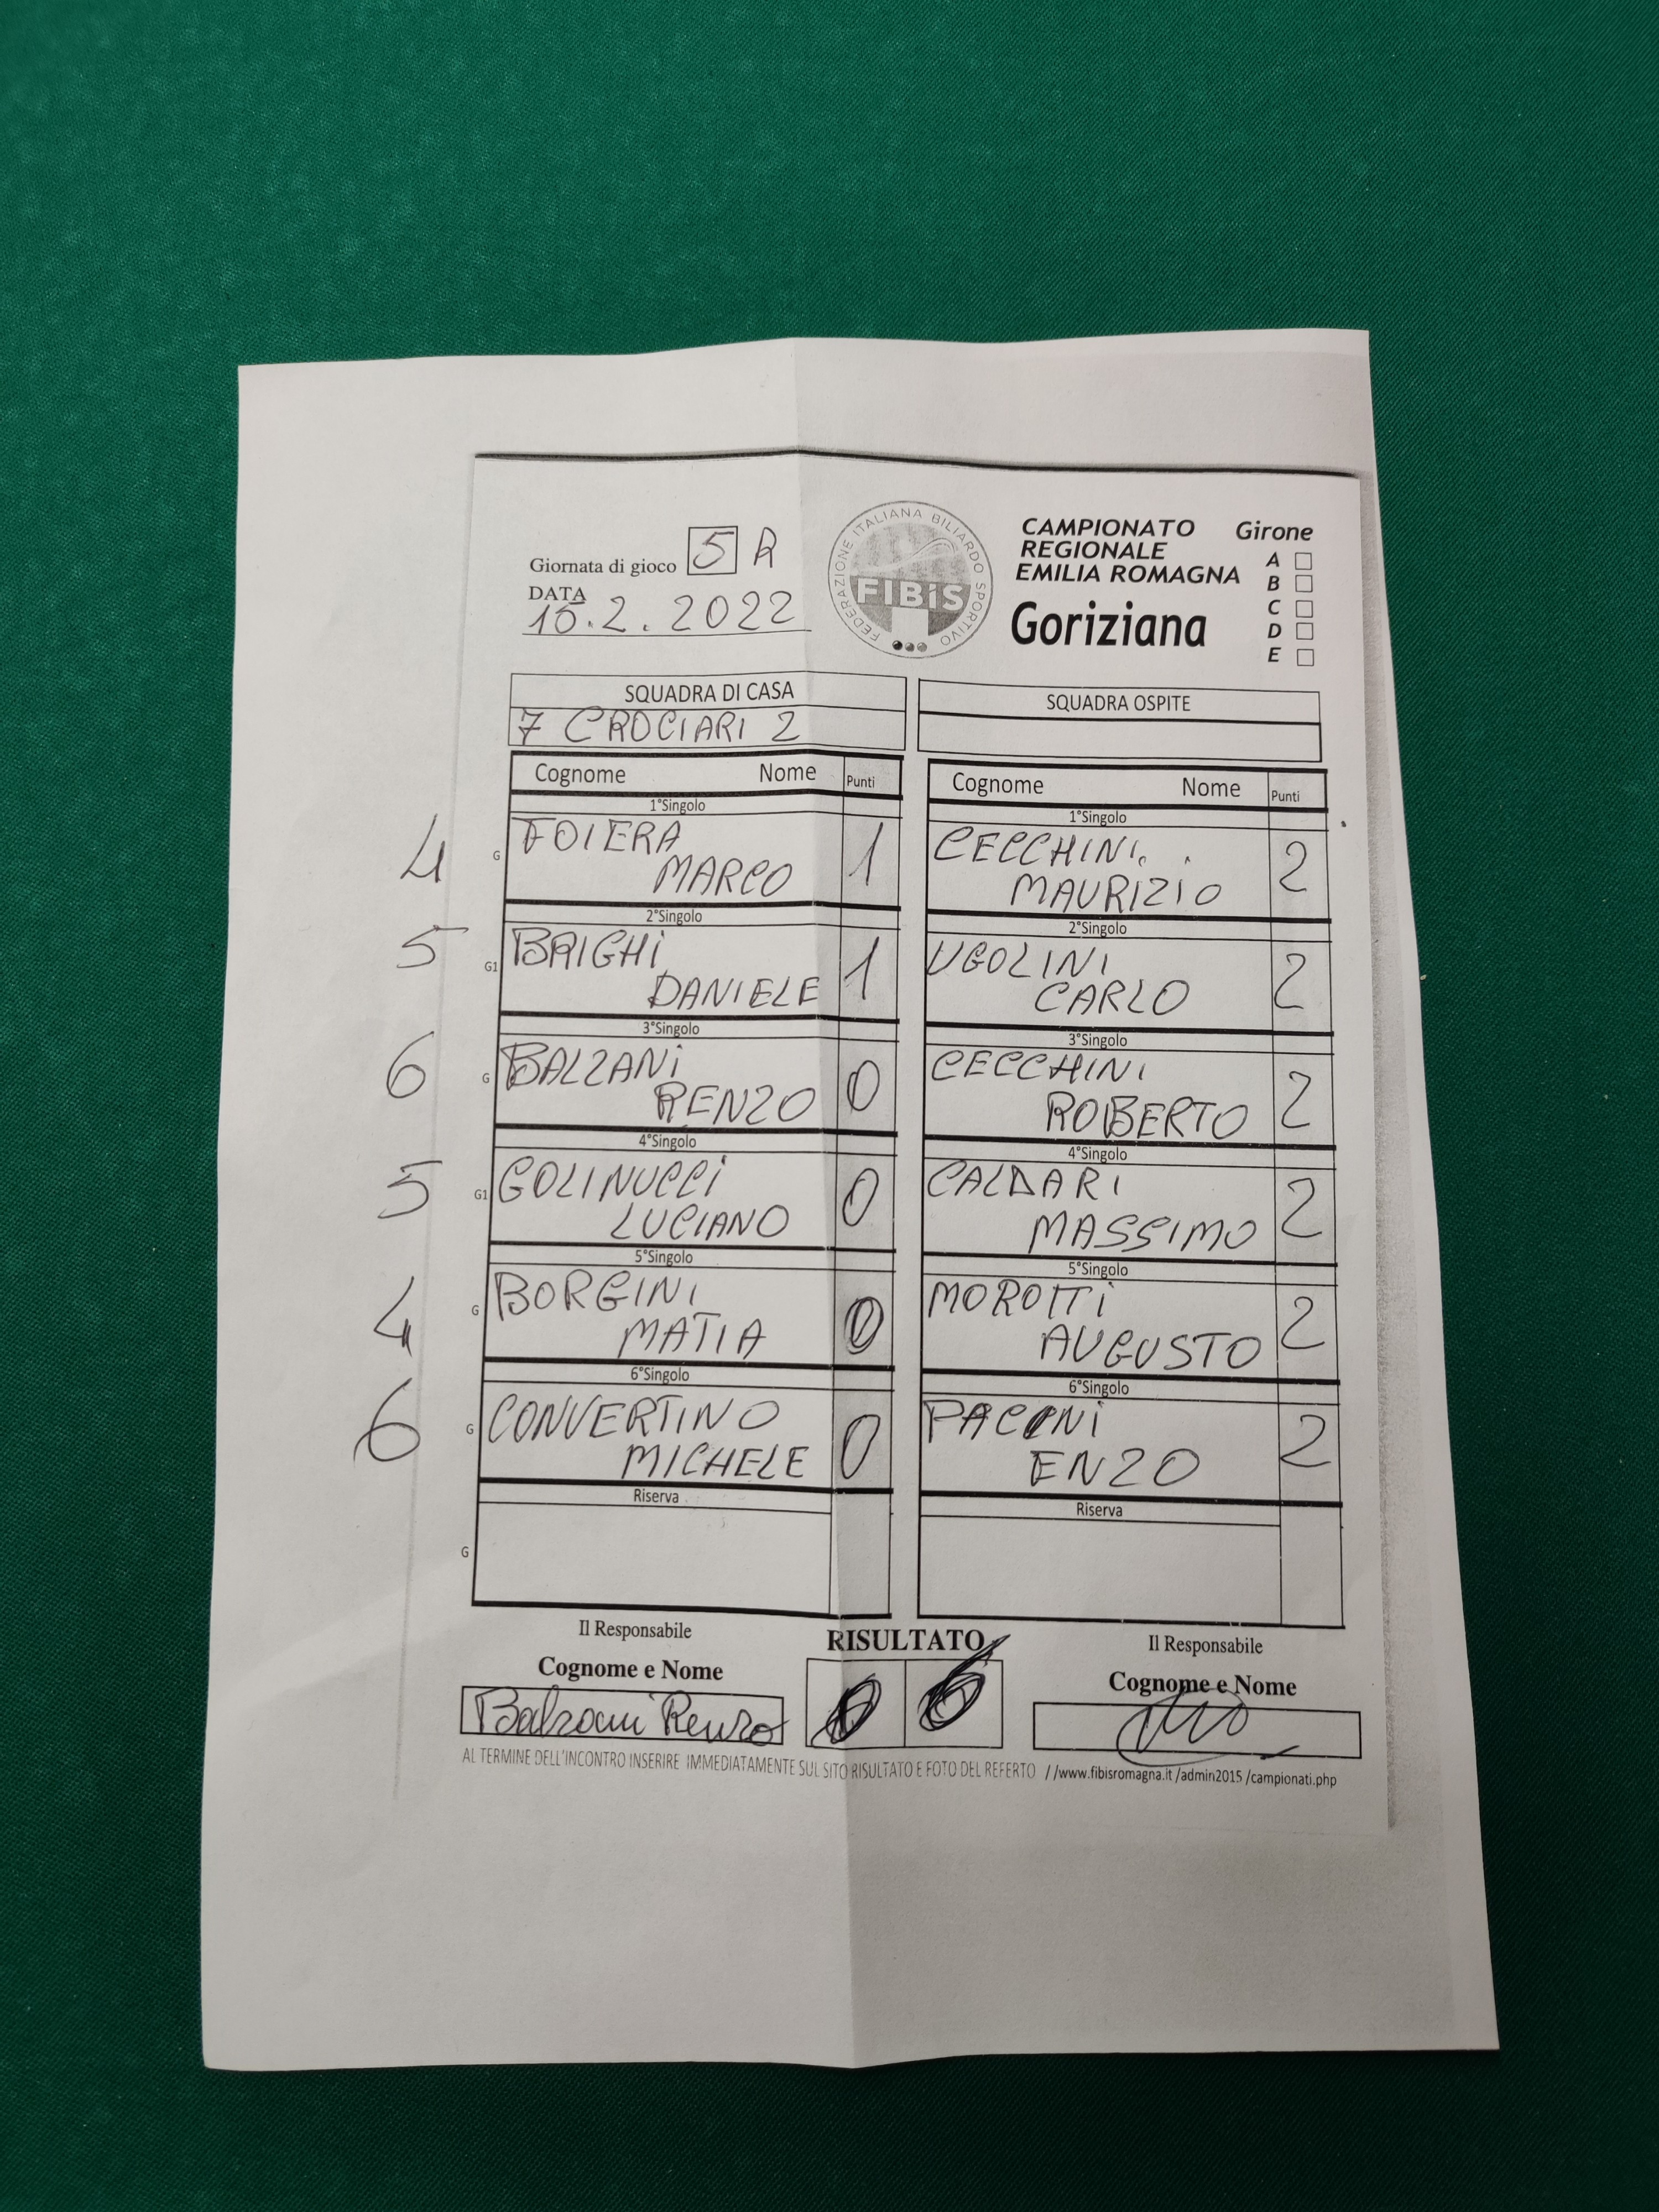 Giornata di gioco 5 R
DATA
15.2.2022
FEDERAZIONE ITALIANA BILIARDO SPORTIVO
FIBiS
CAMPIONATO
REGIONALE
EMILIA ROMAGNA
Goriziana
Girone
A
B
C
D
E
SQUADRA DI CASA
7 CROCIARI 2
SQUADRA OSPITE
Cognome Nome Punti
Cognome Nome Punti
1°Singolo
4 G FOIERA
MARCO 1
1°Singolo
CECCHINI
MAURIZIO 2
2°Singolo
5 G1 BRIGHI
DANIELE 1
2°Singolo
UGOLINI
CARLO 2
3°Singolo
6 G BALZANI
RENZO 0
3°Singolo
CECCHINI
ROBERTO 2
4°Singolo
5 G1 GOLINUCCI
LUCIANO 0
4°Singolo
CALDARI
MASSIMO 2
5°Singolo
4 G BORGINI
MATIA 0
5°Singolo
MOROTTI
AUGUSTO 2
6°Singolo
6 G CONVERTINO
MICHELE 0
6°Singolo
ENZO 2
Riserva
G
Riserva
Il Responsabile
Cognome e Nome
Balzani Renzo
RISULTATO
0 6
Il Responsabile
Cognome e Nome
AL TERMINE DELL'INCONTRO INSERIRE IMMEDIATAMENTE SUL SITO RISULTATO E FOTO DEL REFERTO //www.fibisromagna.it /admin2015 /campionati.php